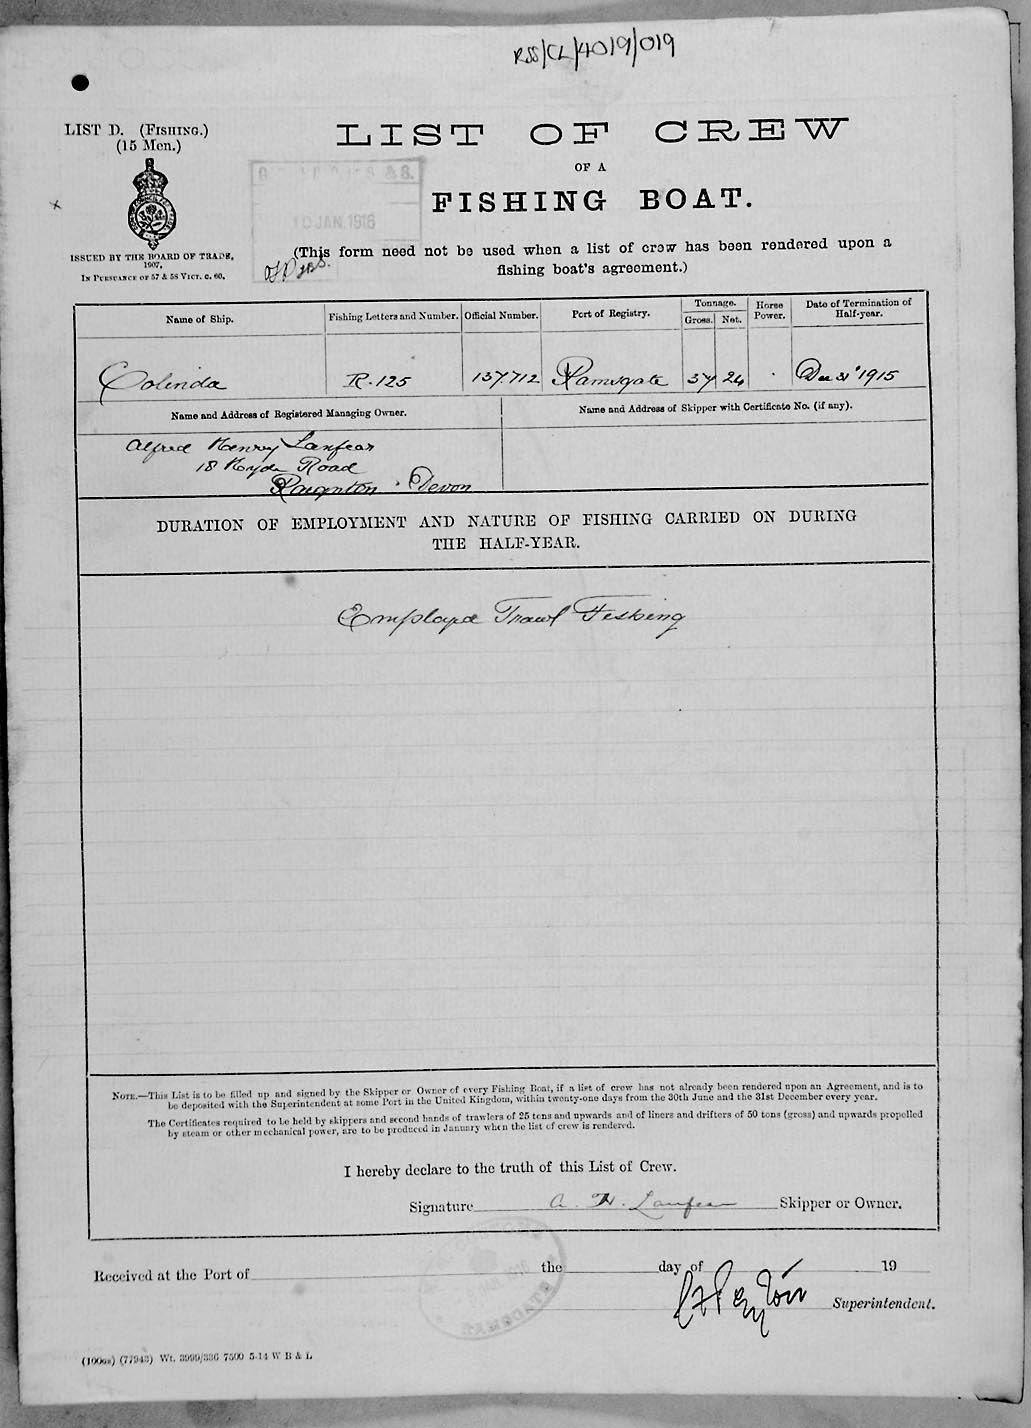 RSS/CL/4019/019
LIST D. (FISHING.)
(15 Men.)
LIST OF CREW
OF A
FISHING BOAT.
10 JAN. 1916
ISSUED BY THE BOARD OF TRADE,
1907,
IN PURSUANCE OF 57 & 58 VICT. C. 60.
(This form need not be used when a list of crew has been rendered upon a
fishing boat's agreement.)
Name of Ship. Fishing Letters and Number. Official Number. Port of Registry. Tonnage. Gross. Net. Horse Power. Date of Termination of Half-year.
Colinda R.125 137.712 Ramsgate 37 24 Dec 31st 1915
Name and Address of Registered Managing Owner. Name and Address of Skipper with Certificate No. (if any).
Alfred Henry Lanfear
18 Hyde Road
Paignton. Devon
DURATION OF EMPLOYMENT AND NATURE OF FISHING CARRIED ON DURING
THE HALF-YEAR.
Employed Trawl Fishing
NOTE.—This List is to be filled up and signed by the Skipper or Owner of every Fishing Boat, if a list of crew has not already been rendered upon an Agreement, and is to
be deposited with the Superintendent at some Port in the United Kingdom, within twenty-one days from the 30th June and the 31st December every year.
The Certificates required to be held by skippers and second hands of trawlers of 25 tons and upwards and of liners and drifters of 50 tons (gross) and upwards propelled
by steam or other mechanical power, are to be produced in January when the list of crew is rendered.
I hereby declare to the truth of this List of Crew.
Signature A. H. Lanfear Skipper or Owner.
Received at the Port of the day of 19
Superintendent.
(100os) (77943) Wt. 3999/336 7500 5-14 W B & L